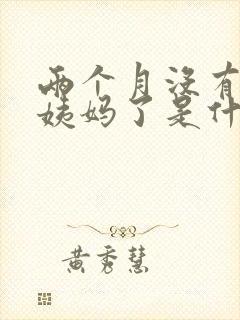 两个月没有
姨妈了是什
黄秀慧